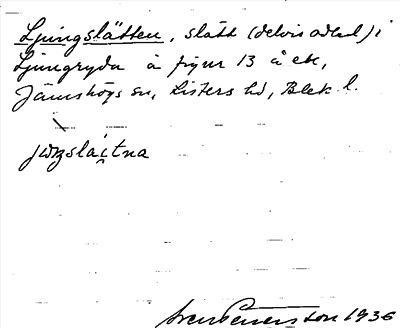 Ljungslätten, slätt (delvis odlad) i
Ljungryda å figur 13 å ek,
Jämshögs sn, Listers hd, Blek l.
jωŋslätna
Sven Benson 1936